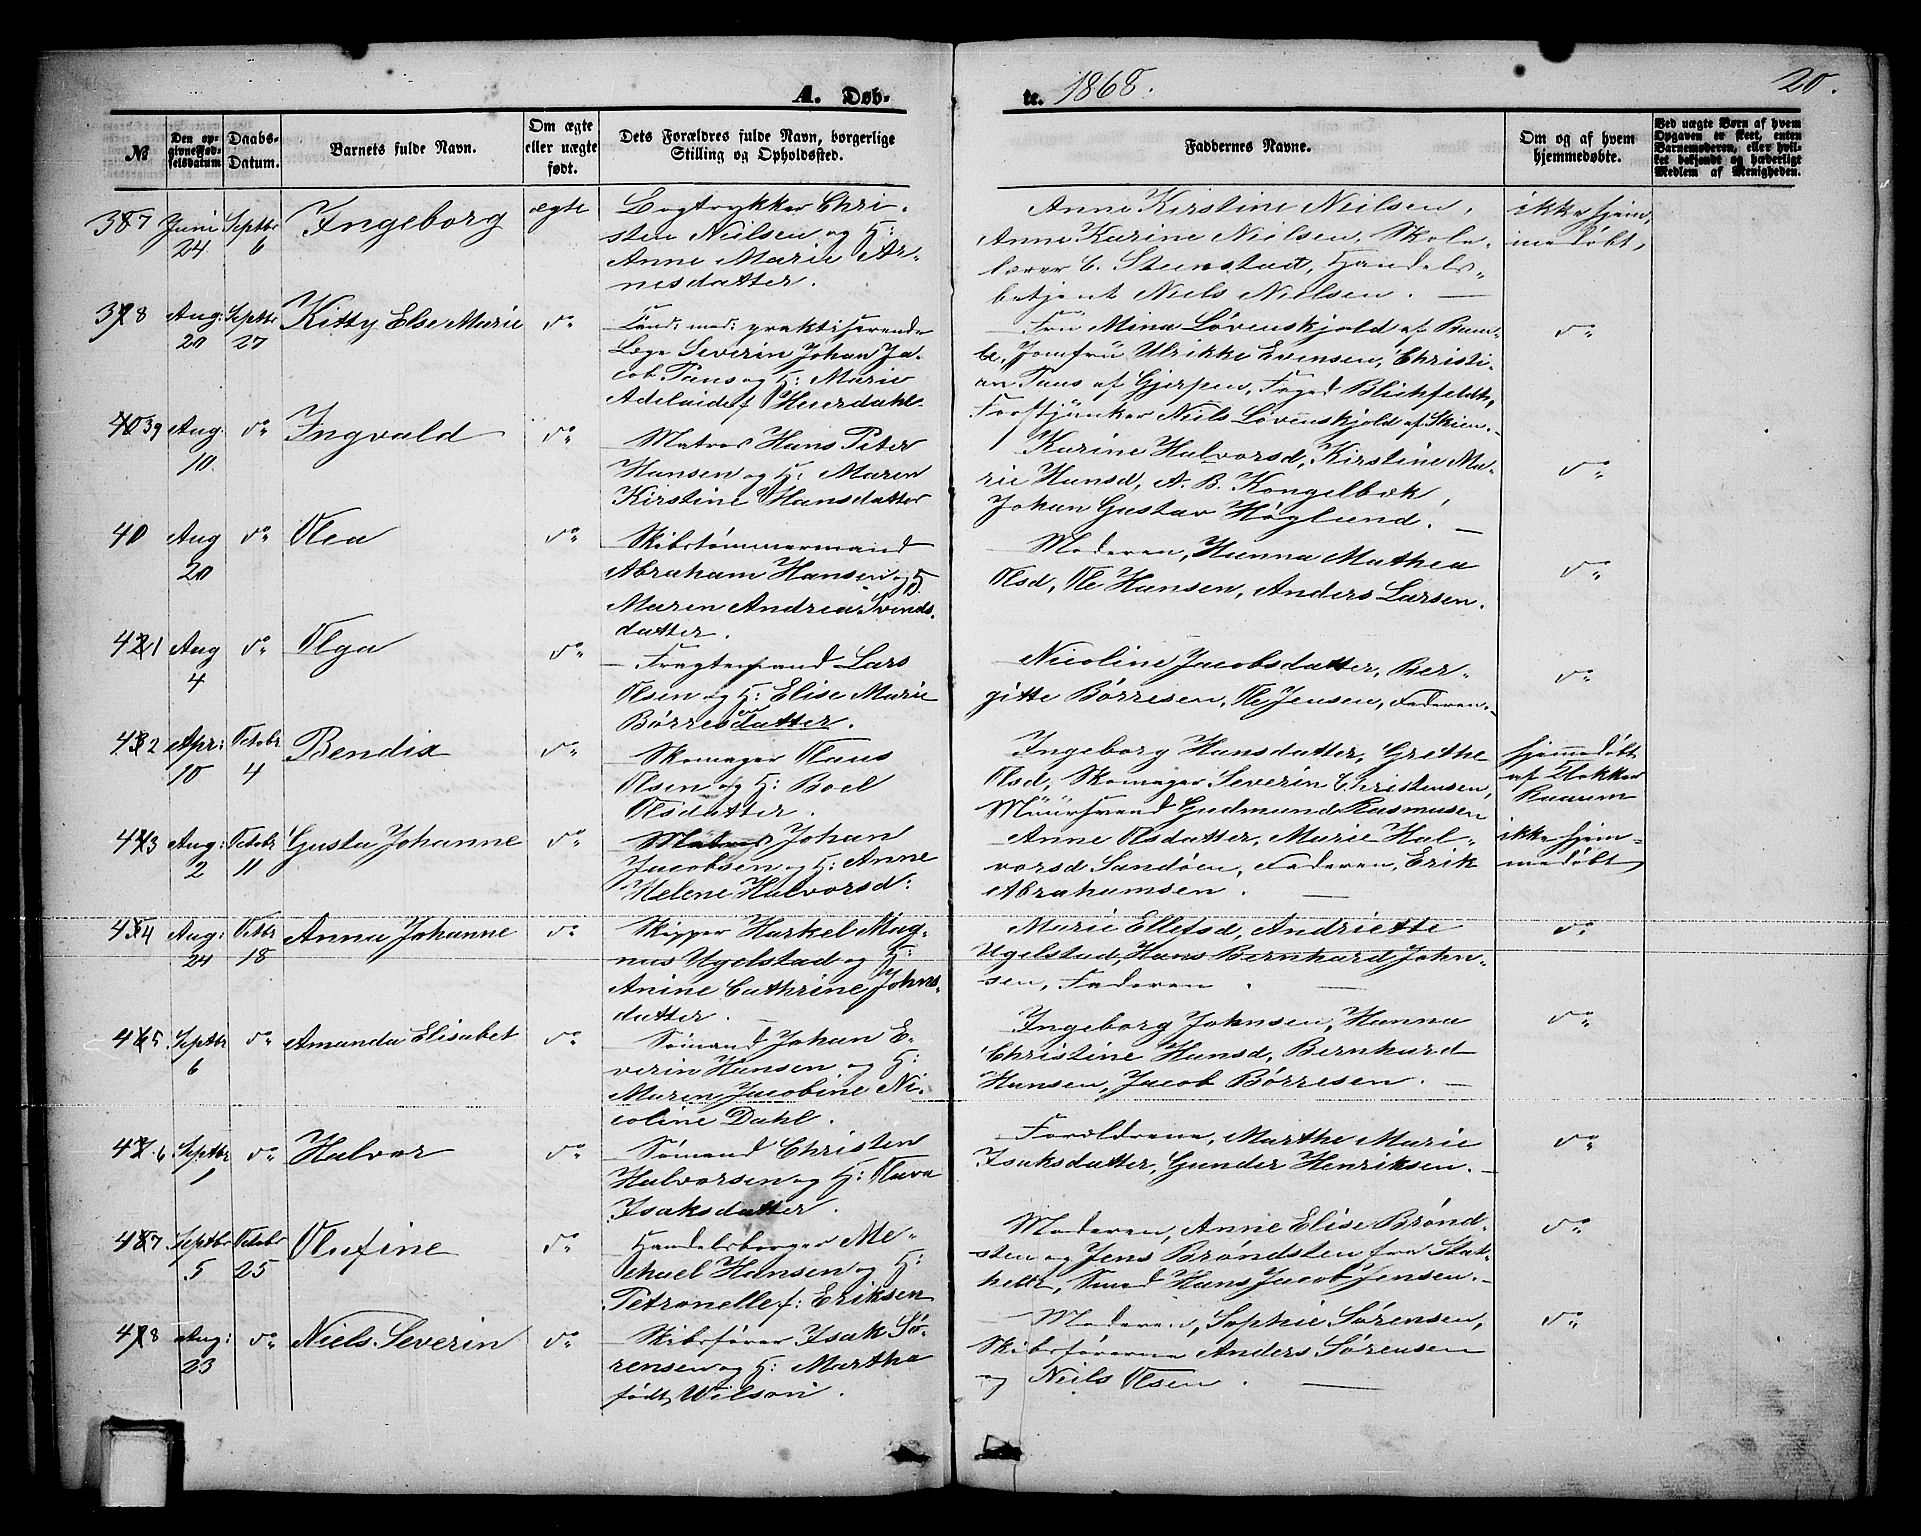 A. Døb-
te. 1868.
20.
№
Den op-
givne Fød-
selsdatum
Daabs-
Datum.
Barnets fulde Navn.
Om ægte
eller uægte
født.
Dets Forældres fulde Navn, borgerlige
Stilling og Opholdssted.
Faddernes Navne.
Om og af hvem
hjemmedøbte.
Ved uægte Børn af hvem
Opgaven er skeet, enten
Barnemoderen, eller hvil-
ket bekjendt og hæderligt
Medlem af Menigheden.
37 Juni 24 Septbr 6 Ingeborg ægte
Bogtrykker Chri-
sten Nielsen og H:
Anne Marie Ar-
nesdatter.
Anne Kirstine Nielsen,
Anne Karine Nielsen, Skole-
lærer C. Steenstad, Handels-
betjent Niels Nielsen.
ikke hjem-
medøbt,
38 Aug: 20 Septbr 27 Kitty Else Marie do
Cand: med: praktiserende
Læge Severin Johan Ja-
cob Paus og H: Marie
Adelaide f Heierdahl.
Fru Mina Løvenskjold af Bam-
le, Jomfru Ulrikke Evensen, Christi-
an Paus af Gjerpen, Foged Blichfeldt,
Forstjunker Niels Løvenskjold af Skien.
do
39 Aug. 10. do Ingvald do
Matros Hans Peter
Hansen og H: Maren
Kirstine Hansdatter
Karine Halvorsd, Kirstine Ma-
rie Hansd, A. B. Kongelbæk,
Johan Gustav Höglund.
do
40 Aug 20 do Olea do
Skibstømmermand
Abraham Hansen og H.
Maren Andrea Svends-
datter.
Moderen, Hanna Mathea
Olsd, Ole Hansen, Anders Larsen.
do
41 Aug 4 do Olga do
Fragtemand Lars
Olsen og H: Elise Marie
Børresdatter.
Nicoline Jacobsdatter, Ber-
gitte Børresen, Ole Jensen, Faderen.
do
42 Apr: 10 Octobr 4 Bendix do
Skomager Olaus
Olsen og H: Boel
Olsdatter.
Ingeborg Hansdatter, Grethe
Olsd, Skomager Severin Christensen,
Muursvend Gudmund Rasmusen
hjemmedøbt
af Klokker
Kaarem
43 Aug: 2 Octobr 11 Gusta Johanne do
Matros Johan
Jacobsen og H: Anne
Helene Halvorsd:
Anne Olsdatter, Marie Hal-
vorsd Sandøen, Faderen, Erik
Abrahamsen.
ikke hjem-
medøbt,
44 Aug: 24 Octbr 18 Anna Johanne do
Skipper Harkel Mag-
nus Ugelstad og H:
Anine Cathrine Johns-
datter.
Marie Ellefsd, Andriette
Ugelstad, Hans Bernhard John-
sen, Faderen.
do
45 Septbr 6 do Amanda Elisabet do
Sømand Johan E-
verin Hansen og H:
Maren Jacobine Ni-
coline Dahl.
Ingeborg Johnsen, Hanna
Christine Hansd, Bernhard
Hansen, Jacob Børresen.
do
46 Septbr 1 do Halvor do
Sømand Christen
Halvorsen og H: Olava
Isaksdatter.
Forældrene, Marthe Marie
Isaksdatter, Gunder Henriksen.
do
47 Septbr 5 Octobr 25 Olufine do
Handelsborger Me-
chael Hansen og H:
Petronelle f: Eriksen
Moderen, Anne Elise Brønd-
sten og Jens Brøndsten fra Stat-
helle, Smed Hans Jacob Jensen.
do
48 Aug: 23 do Niels Severin do
Skibsfører Isak Sø-
rensen og H: Marthe
født Wilson.
Moderen, Sophie Sørensen,
Skibsførerne Anders Sørensen
og Neils Olsen.
do